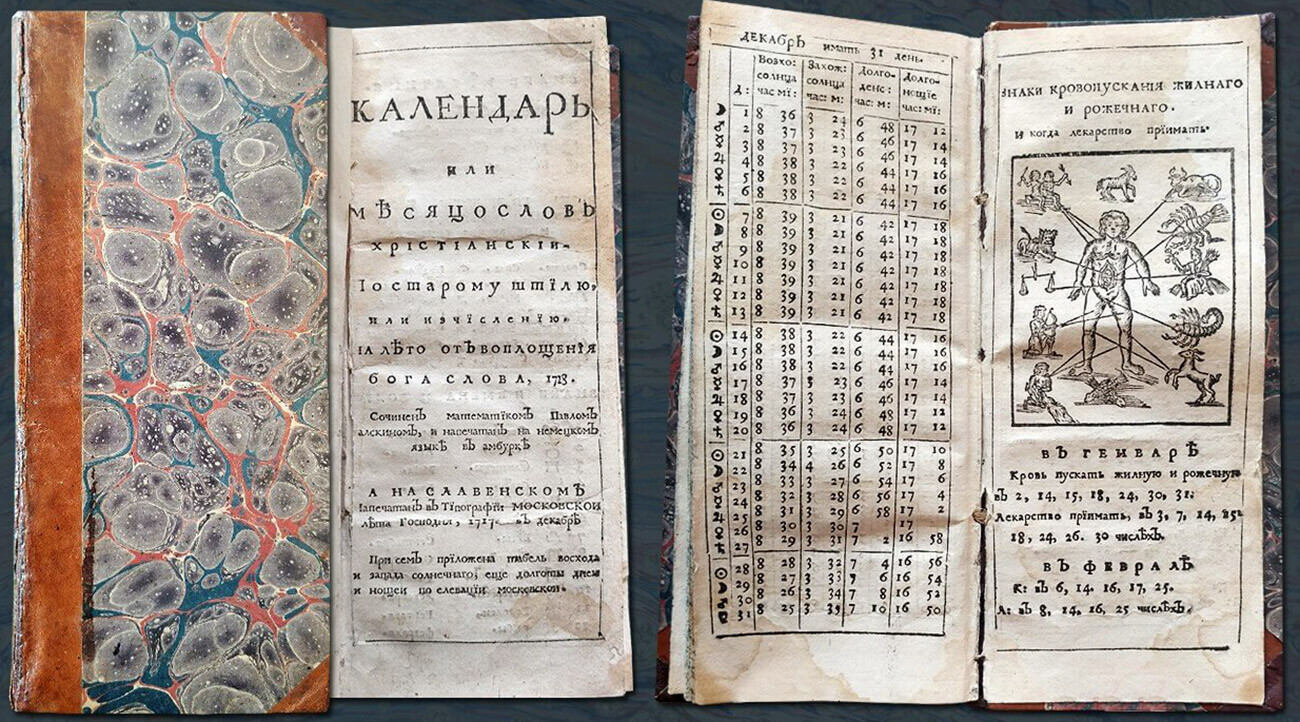 КАЛЕНДАРЬ
или
мѣсяцословъ
хрістіанскіи.
По старому штілю,
или изчісленію.
на лѣто отъ воплощенія
бога слова, 1718.
Сочиненъ математікомъ Павломъ
алскиномъ, и напечатанъ на немецкомъ
языкѣ въ амбуркѣ
А НА СЛАВЕНСКОМЪ
Напечатанъ въ Тіпографіи московской
лѣта Господня, 1717. въ декабрѣ
При семъ пріложена табель восхода
и запада солнечнаго, еще долготы днем
и нощеи по елевации московской.
ДЕКАБРЬ имать 31 день.
Д: Возхо: солнца час: мі: Захож: солнца час: м: Долго денс: час: м: Долго- нощіе час: мі:
☽ 1 8 36 3 24 6 48 17 12
♂ 2 8 37 3 23 6 46 17 14
☿ 3 8 37 3 23 6 46 17 14
♃ 4 8 38 3 22 6 44 17 16
♀ 5 8 38 3 22 6 44 17 16
♄ 6 8 38 3 22 6 44 17 16
☉ 7 8 39 3 21 6 42 17 18
☽ 8 8 39 3 21 6 42 17 18
♂ 9 8 39 3 21 6 42 17 18
☿ 10 8 39 3 21 6 42 17 18
♃ 11 8 39 3 21 6 42 17 18
♀ 12 8 39 3 21 6 42 17 18
♄ 13 8 39 3 21 6 42 17 18
☉ 14 8 38 3 22 6 44 17 16
☽ 15 8 38 3 22 6 44 17 16
♂ 16 8 38 3 22 6 44 17 16
☿ 17 8 37 3 23 6 46 17 14
♃ 18 8 37 3 23 6 46 17 14
♀ 19 8 36 3 24 6 48 17 12
♄ 20 8 36 3 24 6 48 17 12
☉ 21 8 35 3 25 6 50 17 10
☽ 22 8 34 4 26 6 52 17 8
♂ 23 8 33 3 27 6 54 17 6
☿ 24 8 32 3 28 6 56 17 4
♃ 25 8 31 3 29 6 58 17 2
♀ 26 8 30 3 30 7 17
♄ 27 8 29 3 31 7 2 16 58
☉ 28 8 28 3 32 7 4 16 56
☽ 29 8 27 3 33 7 6 16 54
♂ 30 8 26 3 34 7 8 16 52
☿ 31 8 25 3 35 7 10 16 50
знаки кровопусканія жилнаго
и рожечнаго.
и когда лекарство прїимать.
ВЪ ГЕНВАРѢ
Кровь пускать жилную и рожечную
въ 2, 14, 15, 18, 24, 30, 31.
Лекарство прїимать, въ 3, 7, 14, 15.
18, 24, 26. 30 числѣхъ.
ВЪ ФЕВРАЛѢ
К: въ 6, 14. 16, 17, 25.
Л: въ 8, 14, 16, 25 числѣхъ.